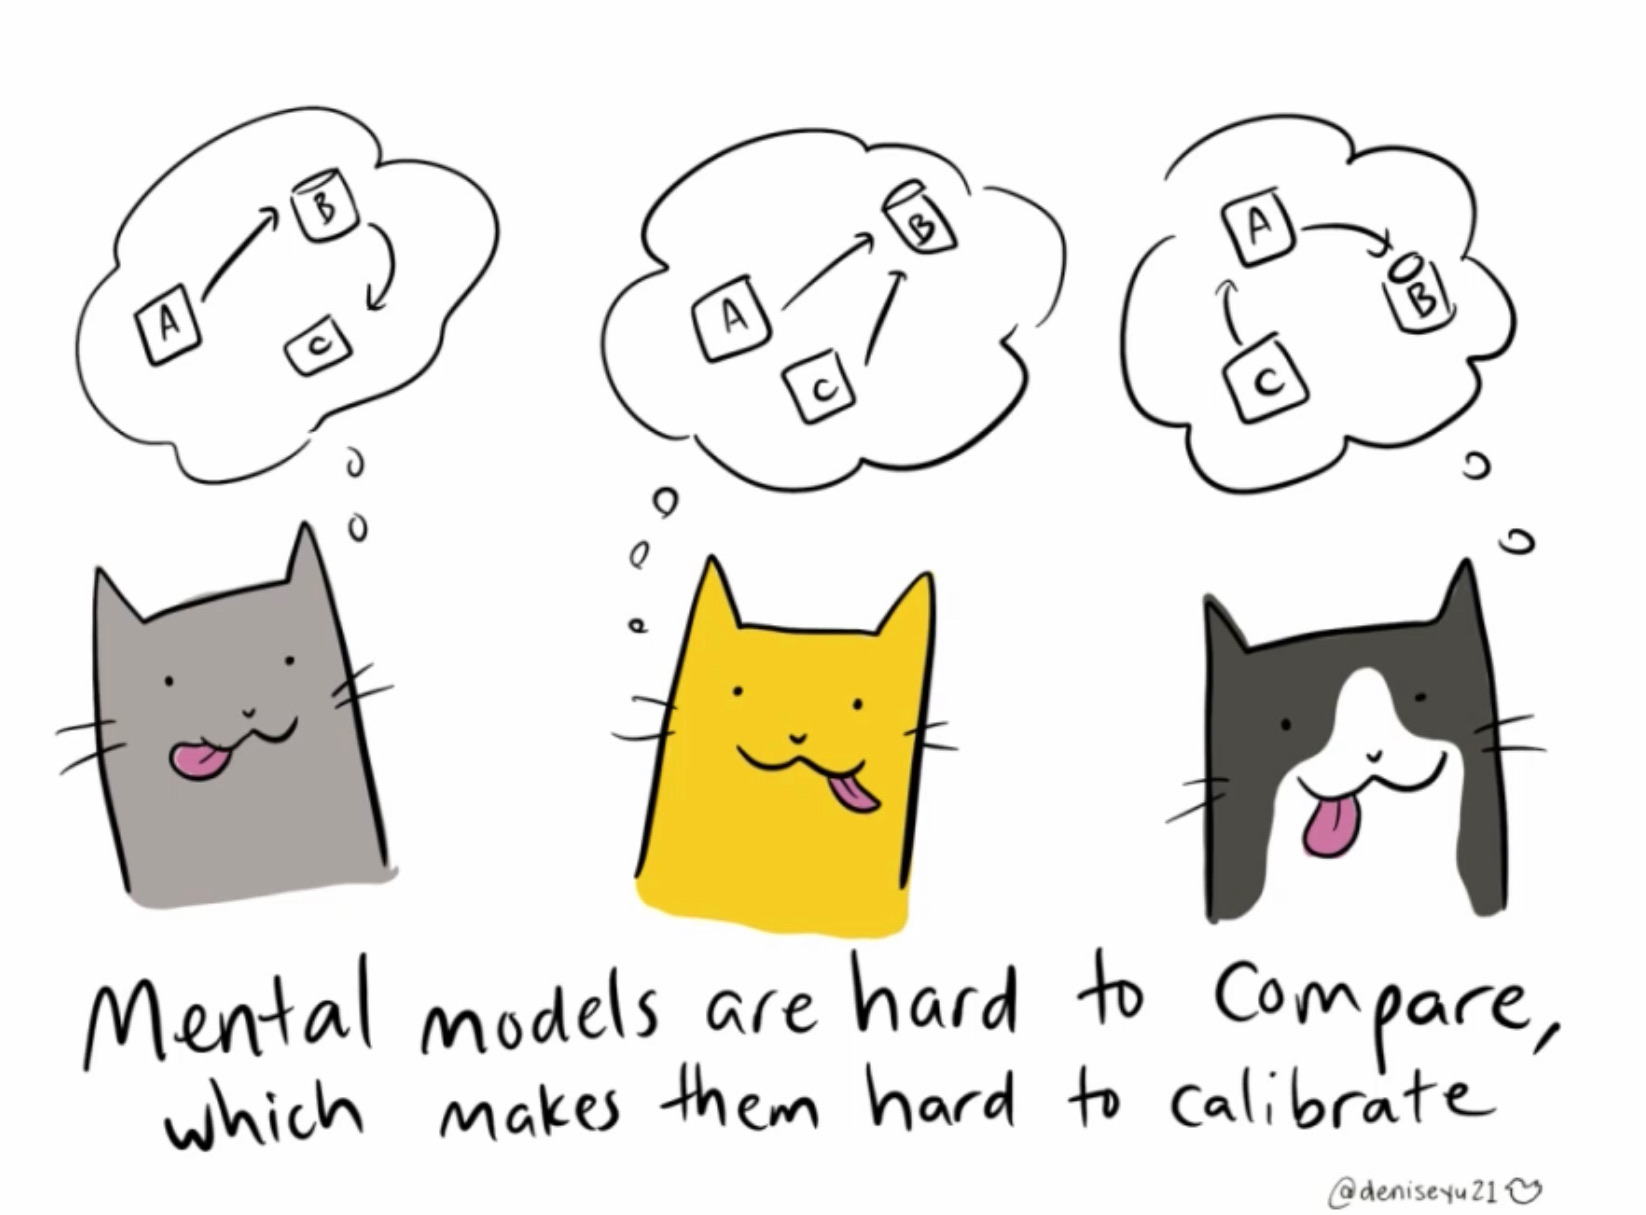 B
A
C
B
A
C
A
B
C
Mental models are hard to compare,
which makes them hard to calibrate
@deniseyu21